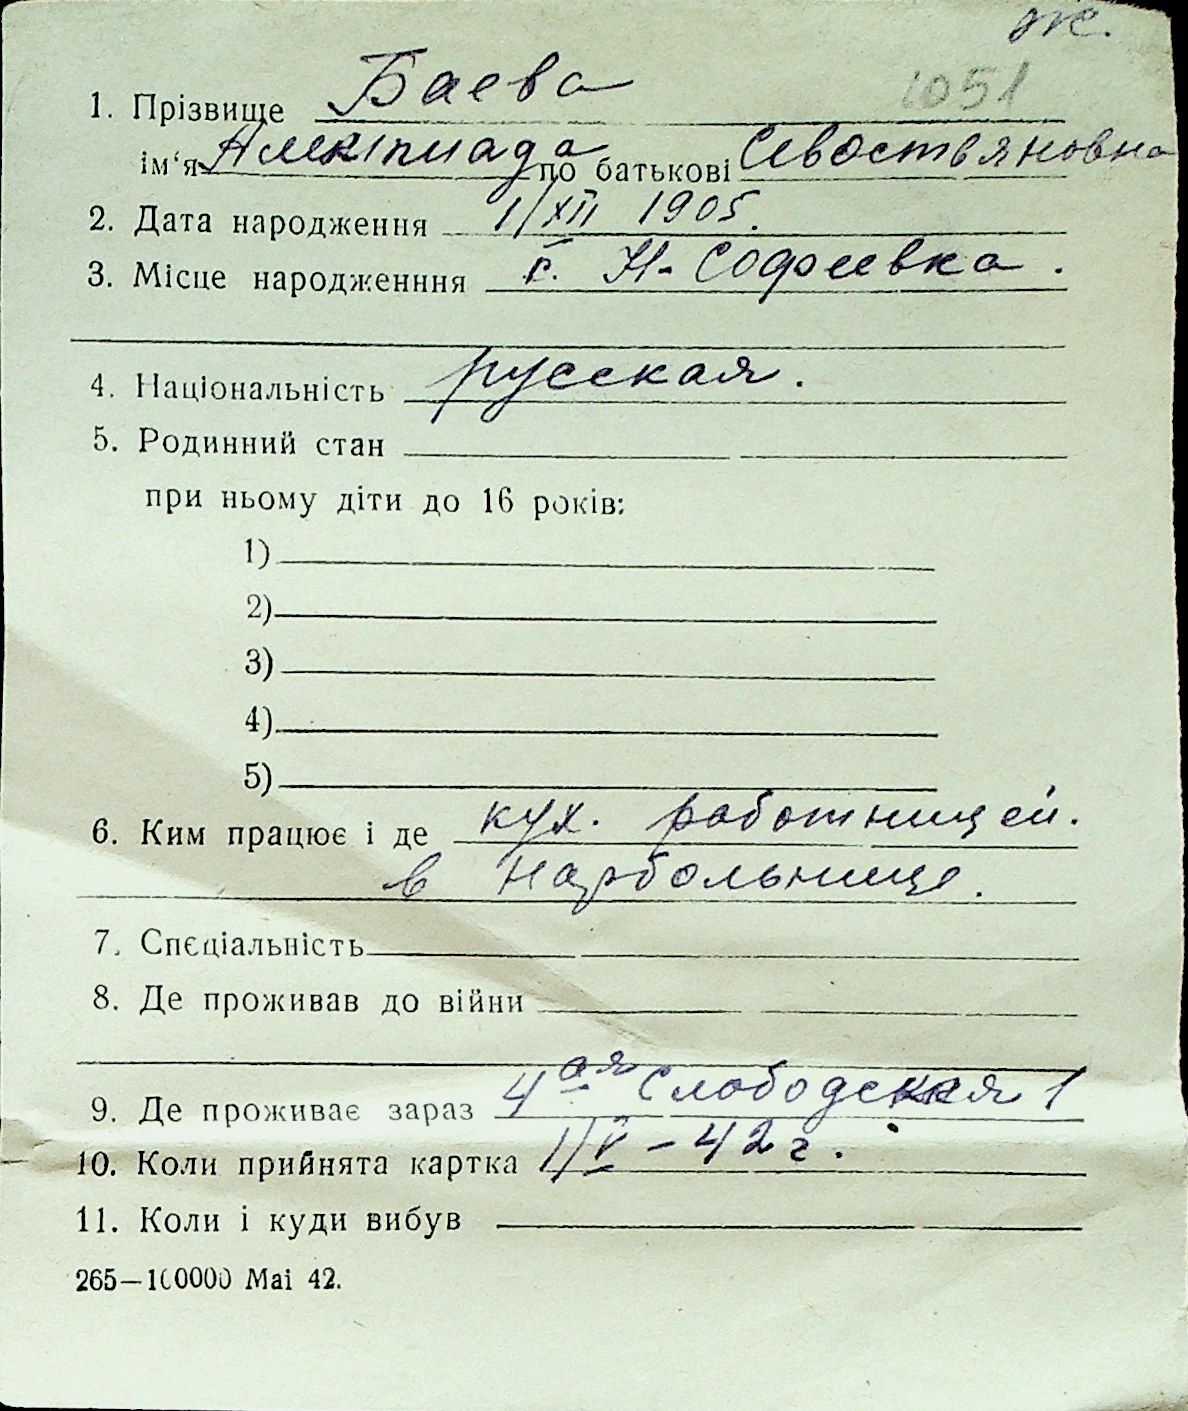 ж.
1051
1. Прізвище Баева
ім‘я Алкіпиада по батькові Севоствяновна
2. Дата народження 1/XII 1905.
3. Місце народженння с. Н-Софиевка.
4. Національність русская.
5. Родинний стан
при ньому діти до 16 років:
1)
2)
3)
4)
5)
6. Ким працює і де кух. работницей.
в Нарбольнице.
7. Спєціальність
8. Де проживав до війни
9. Де проживає зараз 4ая Слободская 1
10. Коли прийнята картка 1/V-42 г.
11. Коли і куди вибув
265—100000 Mai 42.